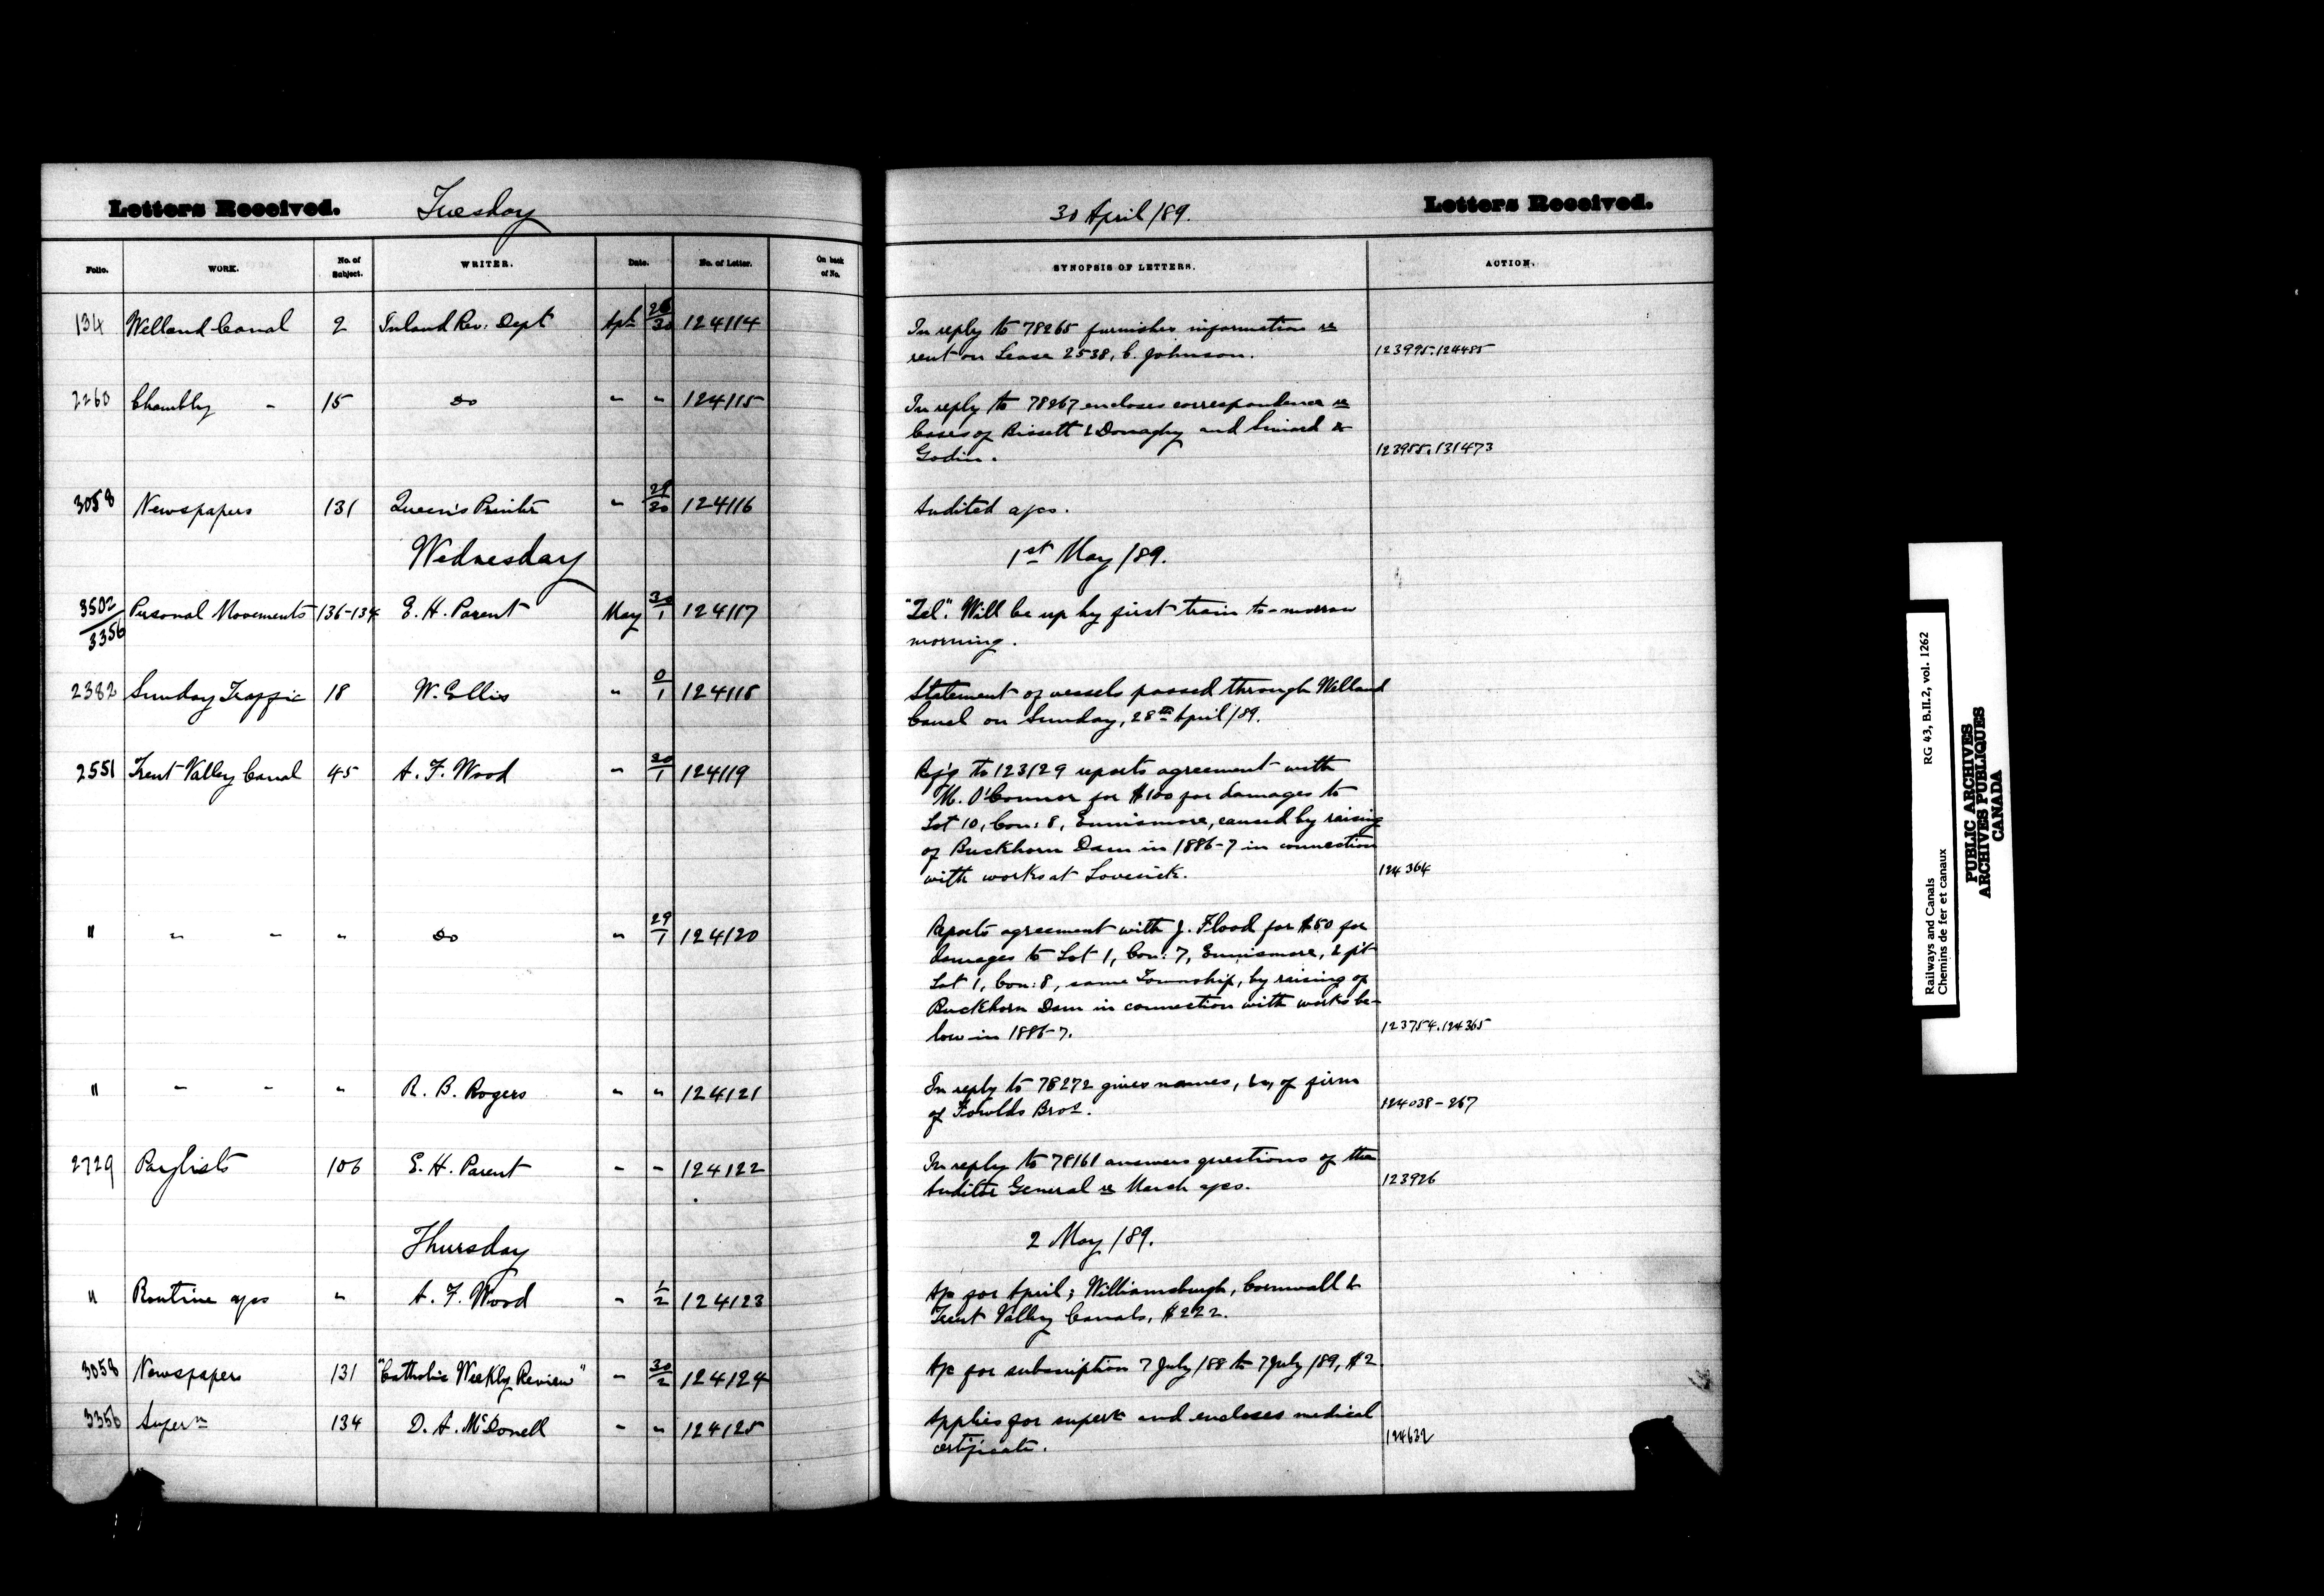 Letters Received. Tuesday 30 April /89. Letters Received.
Folio. WORK. No. of Subject. WRITER. Date. No. of Letter. On back of No. SYNOPSIS OF LETTERS. ACTION.
134 Welland Canal 2 Inland Rev: Dept Apl 26/30 124114 In reply to 78265 furnishes information re
rent on Lease 2538, C. Johnson. 123995.124485
2260 Chambly " 15 Do " " 124115 In reply to 78267 encloses correspondence re
Cases of Bissett & Donaghy and Simard &
Godin. 123955.131473
3058 Newspapers 131 Queen's Printer " 29/30 124116 Audited a/cs.
Wednesday 1st May /89.
3502/3356 Personal Movements 136-134 E. H. Parent May 30/1 124117 "Tel". Will be up by first train to-morrow
morning.
2382 Sunday Traffic 18 W. Ellis " 0/1 124118 Statement of vessels passed through Welland
Canal on Sunday, 28th April /89.
2551 Trent Valley Canal 45 A. F. Wood " 20/1 124119 Ref'g to 123129 reports agreement with
M. O'Connor for $100 for damages to
Lot 10, Con: 8, Ennismore, caused by raising
of Buckhorn Dam in 1886-7 in connection
with works at Lovesick. 124364
" " " " Do " 29/1 124120 Reports agreement with J. Flood for $50 for
damages to Lot 1, Con: 7, Ennismore, & pt
Lot 1, Con: 8, same Township, by raising of
Buckhorn Dam in connection with works be-
low in 1886-7. 123754.124365
" " " " R. B. Rogers " " 124121 In reply to 78272 gives names, &c, of firm
of Fowlds Bros. 124038-267
2729 Paylists 106 E. H. Parent " " 124122 In reply to 78161 answers questions of the
Auditor General re March a/cs. 123926
Thursday 2 May /89.
" Routine a/cs " A. F. Wood " 1/2 124123 A/c for April; Williamsburgh, Cornwall &
Trent Valley Canals, $222.
3058 Newspapers 131 "Catholic Weekly Review" " 30/2 124124 A/c for subscription 7 July /88 to 7 July /89, $2
3356 Super'n 134 D. A. McDonell " " 124125 Applies for super'n and encloses medical
certificate. 124632
Railways and Canals RG 43, B.II.2, vol. 1262
Chemins de fer et canaux
PUBLIC ARCHIVES
ARCHIVES PUBLIQUES
CANADA